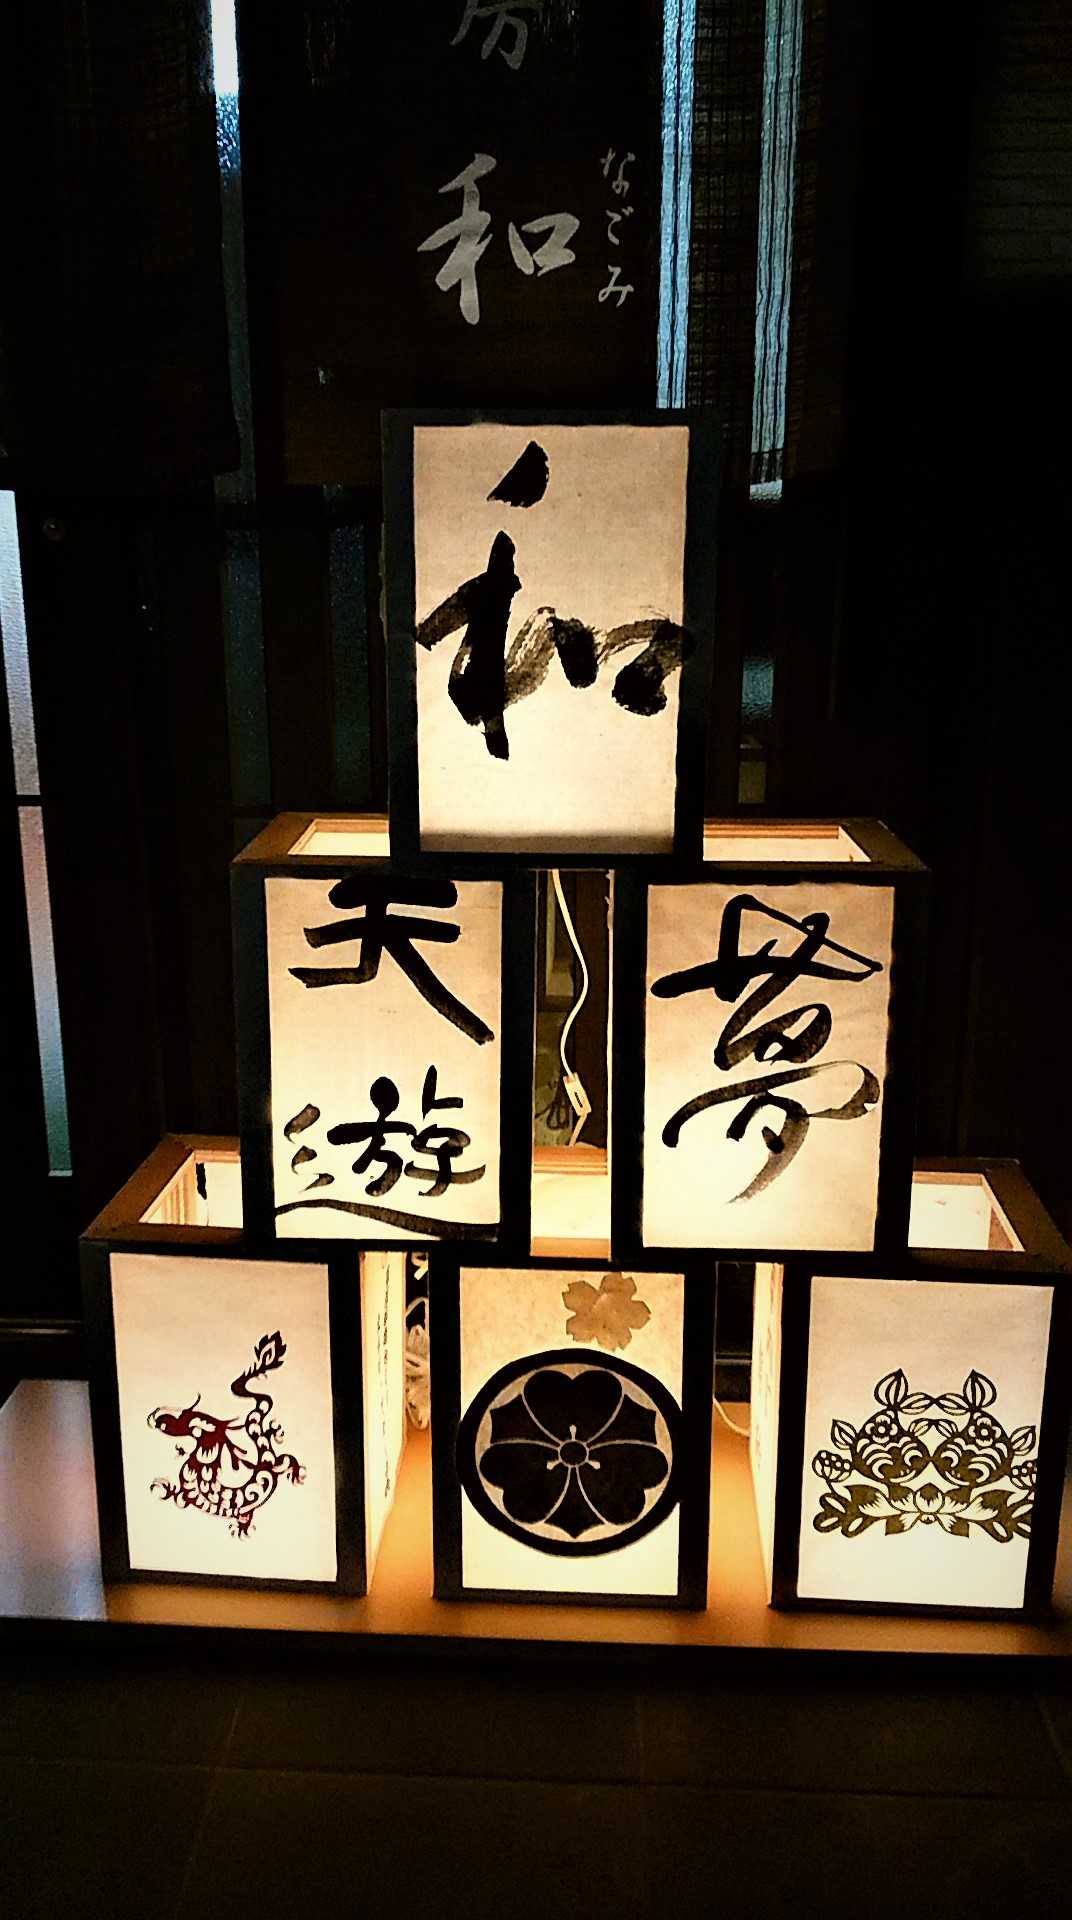 房
和
なごみ
和
天遊
夢